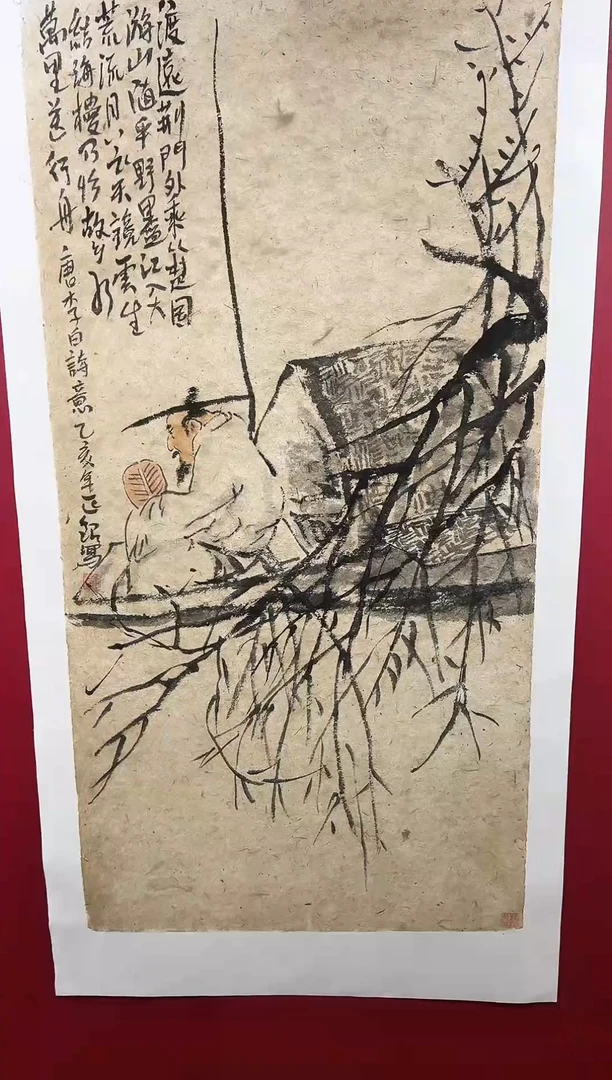 渡遠荆門外來从楚国
游山随平野盡江入大
荒流月下飞天鏡雲生
結海樓乃怜故乡水
萬里送行舟
唐李白詩意乙亥年寫